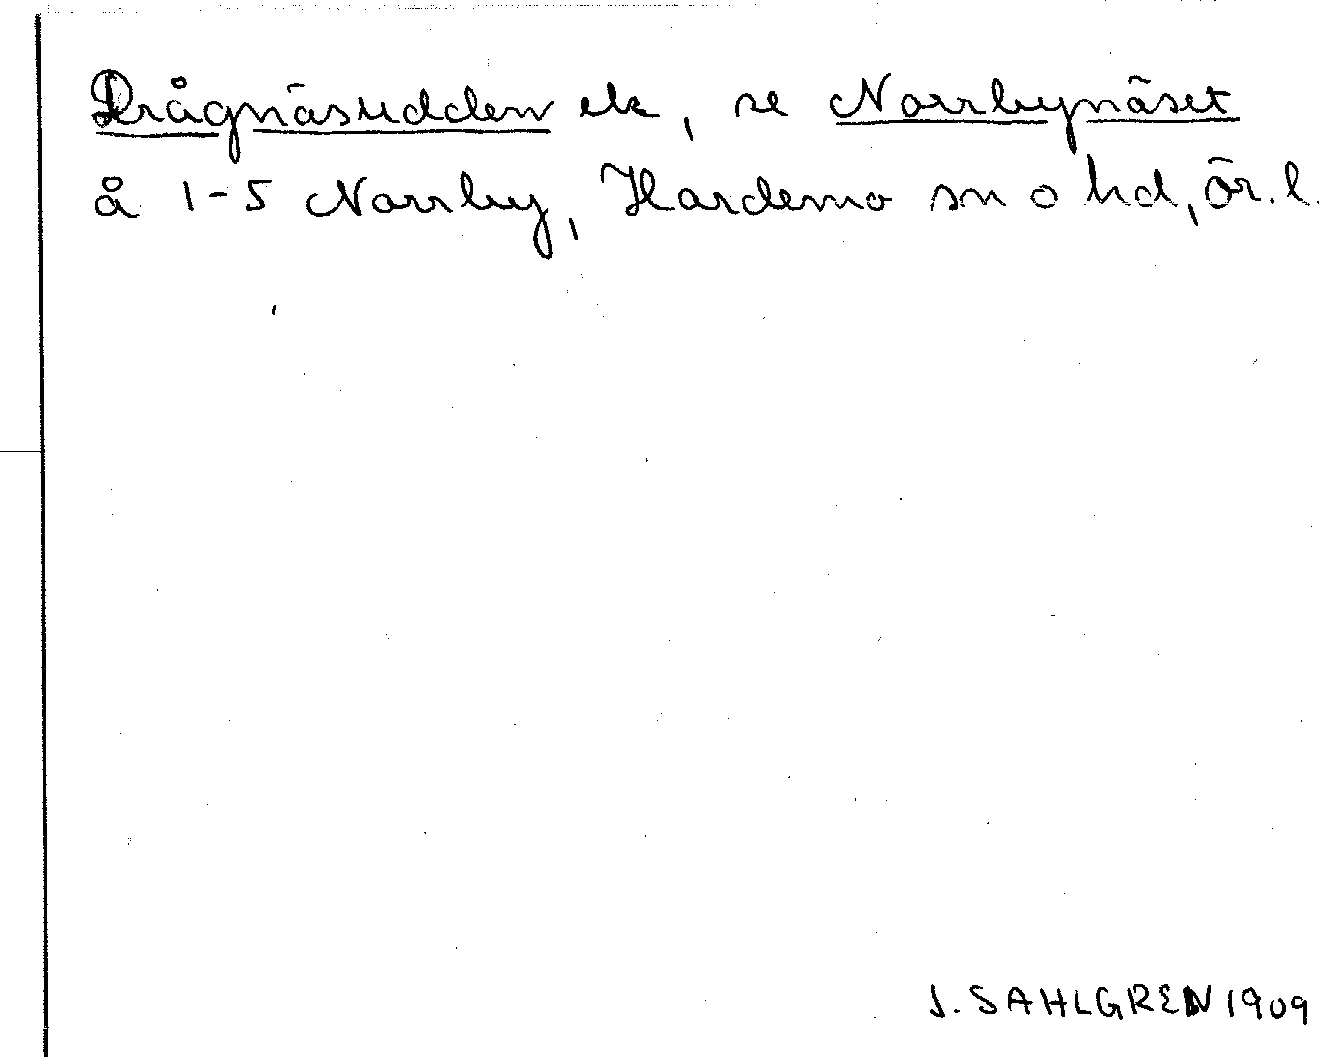 Drågnäsudden ek, se Norrbynäset
å 1-5 Norrby, Hardemo sn o hd, ör. l.
J. SAHLGREN 1909